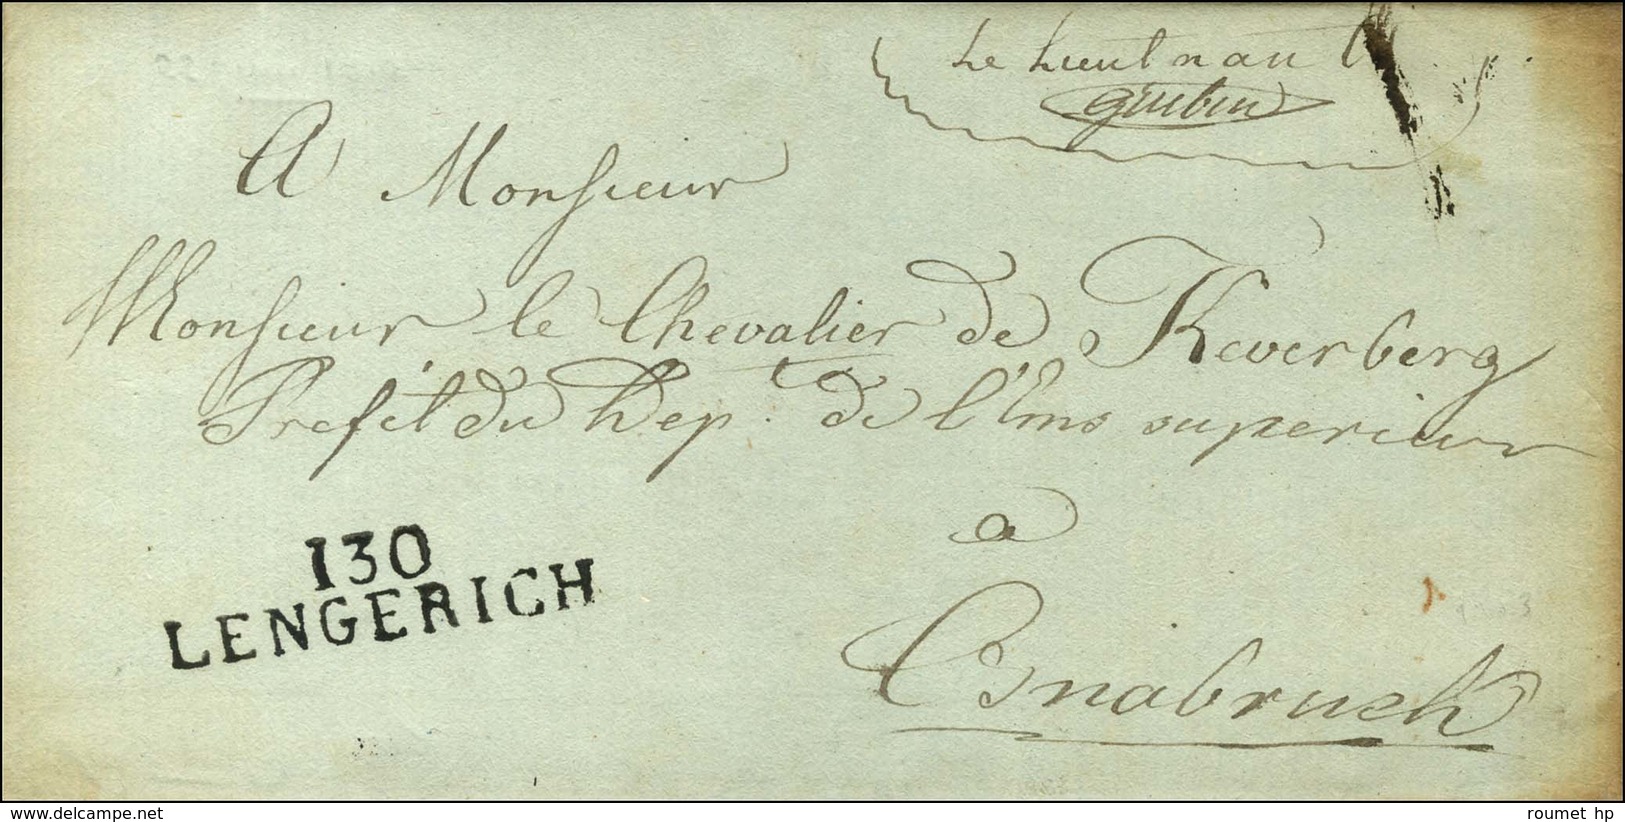 Le Lieutnant
A Monsieur
Monsieur le Chevalier de Keverberg
Prefét du Dep.t de l'Ems superieur
a
Osnabruck
130
LENGERICH
www.delcampe.net
roumet hp